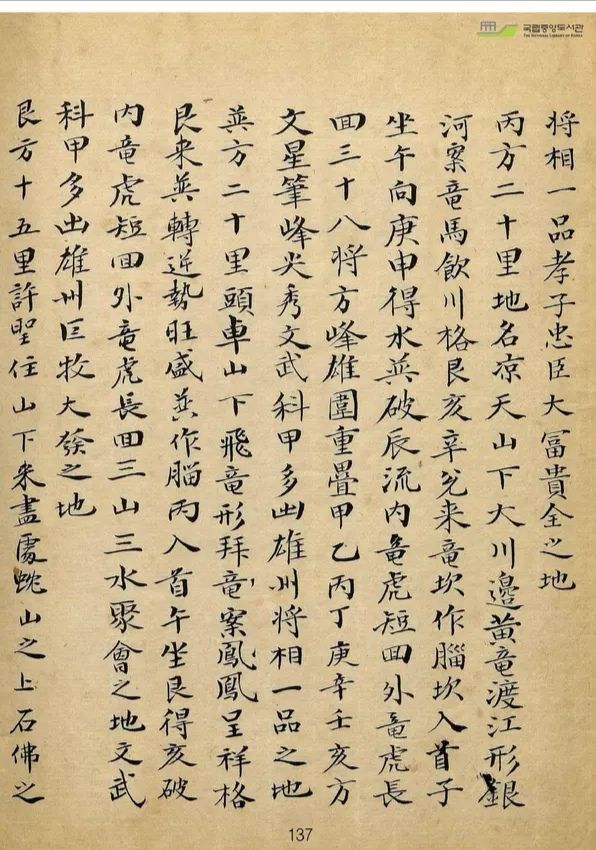 국립중앙도서관
THE NATIONAL LIBRARY OF KOREA
将相一品孝子忠臣大冨貴全之地
丙方二十里地名凉天山下大川邊黄竜渡江形銀
河案竜馬飮川格艮亥辛兌来竜坎作腦坎入首子
坐午向庚申得水巽破辰流内竜虎短回外竜虎長
回三十八将方峰雄圍重疊甲乙丙丁庚辛壬亥方
文星筆峰尖秀文武科甲多出雄州将相一品之地
巽方二十里頭車山下飛竜形拜竜案鳳凰呈祥格
艮来巽轉逆勢旺盛巽作腦丙入首午坐艮得亥破
内竜虎短回外竜虎長回三山三水聚會之地文武
科甲多出雄州巨牧大發之地
艮方十五里許聖住山下来盡處蛇山之上石佛之
137